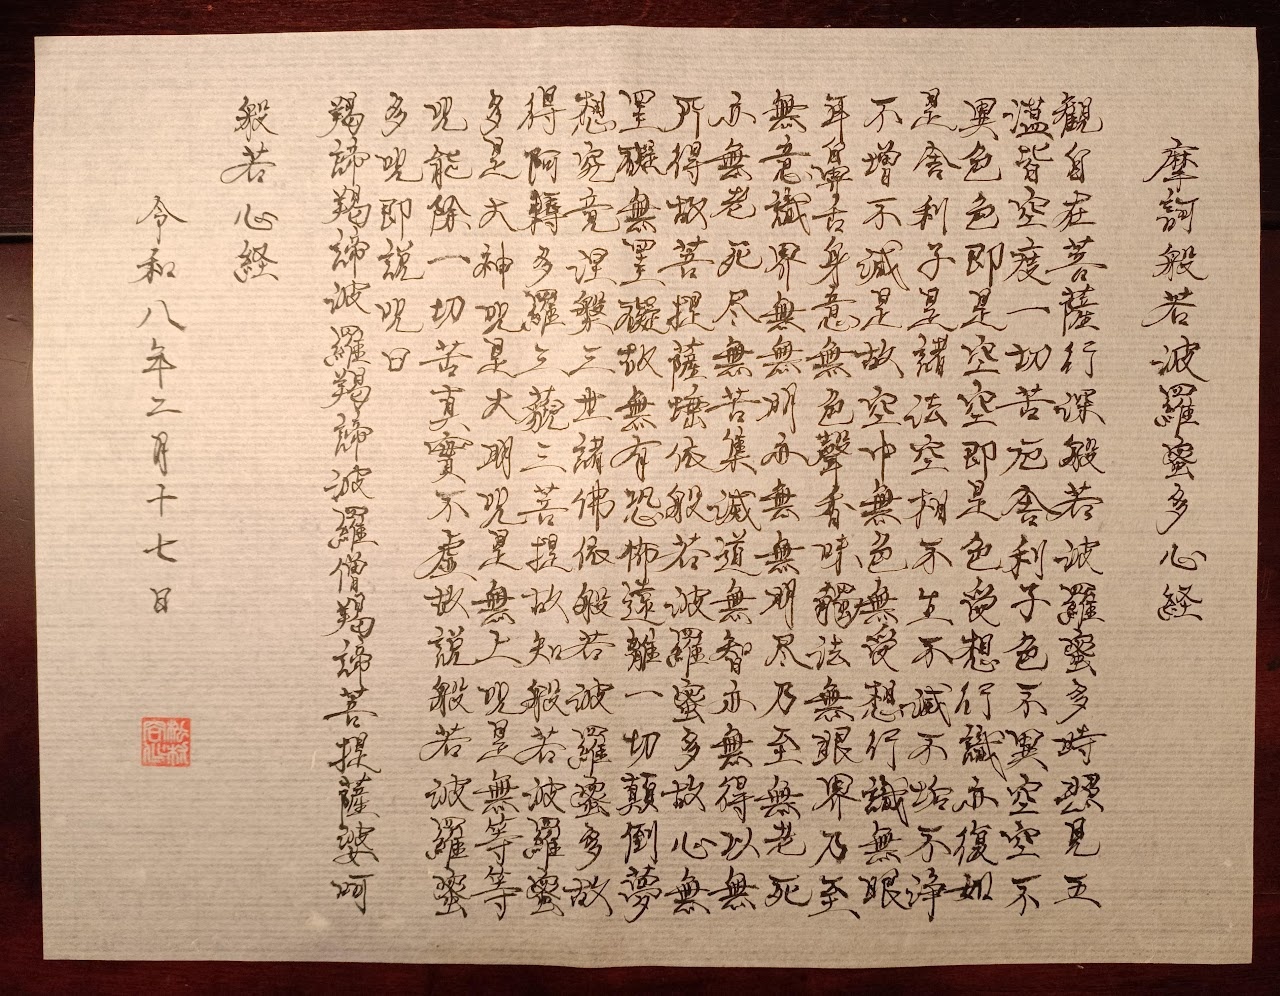 摩訶般若波羅蜜多心経
觀自在菩薩行深般若波羅蜜多時照見五
蘊皆空度一切苦厄舎利子色不異空空不
異色色即是空空即是色受想行識亦復如
是舎利子是諸法空相不生不滅不垢不浄
不増不減是故空中無色無受想行識無眼
耳鼻舌身意無色聲香味觸法無眼界乃至
無意識界無無明亦無無明尽乃至無老死
亦無老死尽無苦集滅道無智亦無得以無
所得故菩提薩埵依般若波羅蜜多故心無
罣礙無罣礙故無有恐怖遠離一切顛倒夢
想究竟涅槃三世諸佛依般若波羅蜜多故
得阿耨多羅三藐三菩提故知般若波羅蜜
多是大神呪是大明呪是無上呪是無等等
呪能除一切苦真實不虚故説般若波羅蜜
多呪即説呪曰
羯諦羯諦波羅羯諦波羅僧羯諦菩提薩婆呵
般若心経
令和八年二月十七日